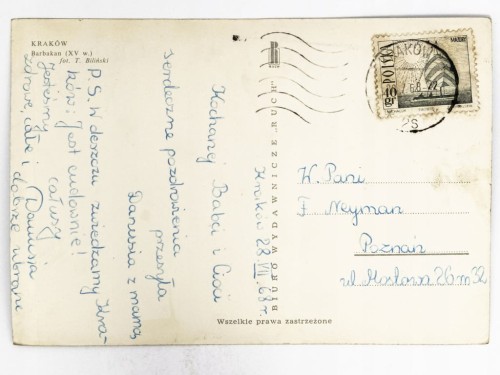 KRAKÓW
Barbakan (XV w.)
fot. T. Biliński
BIURO WYDAWNICZE "RUCH"
Wszelkie prawa zastrzeżone
KRAKÓW
POLSKA
Kraków 28 VII 68 r.
Kochanej Babci i Cioci
serdeczne pozdrowienia
przesyła
Danusia z mamą
P.S. W deszczu zwiedzamy Kra-
ków. Jest cudownie!
całusy
Danusia
Jesteśmy
zdrowe, całe i dobrze ubrane
W. Pani
F. Neyman
Poznań
ul. Mostowa 26 m 32